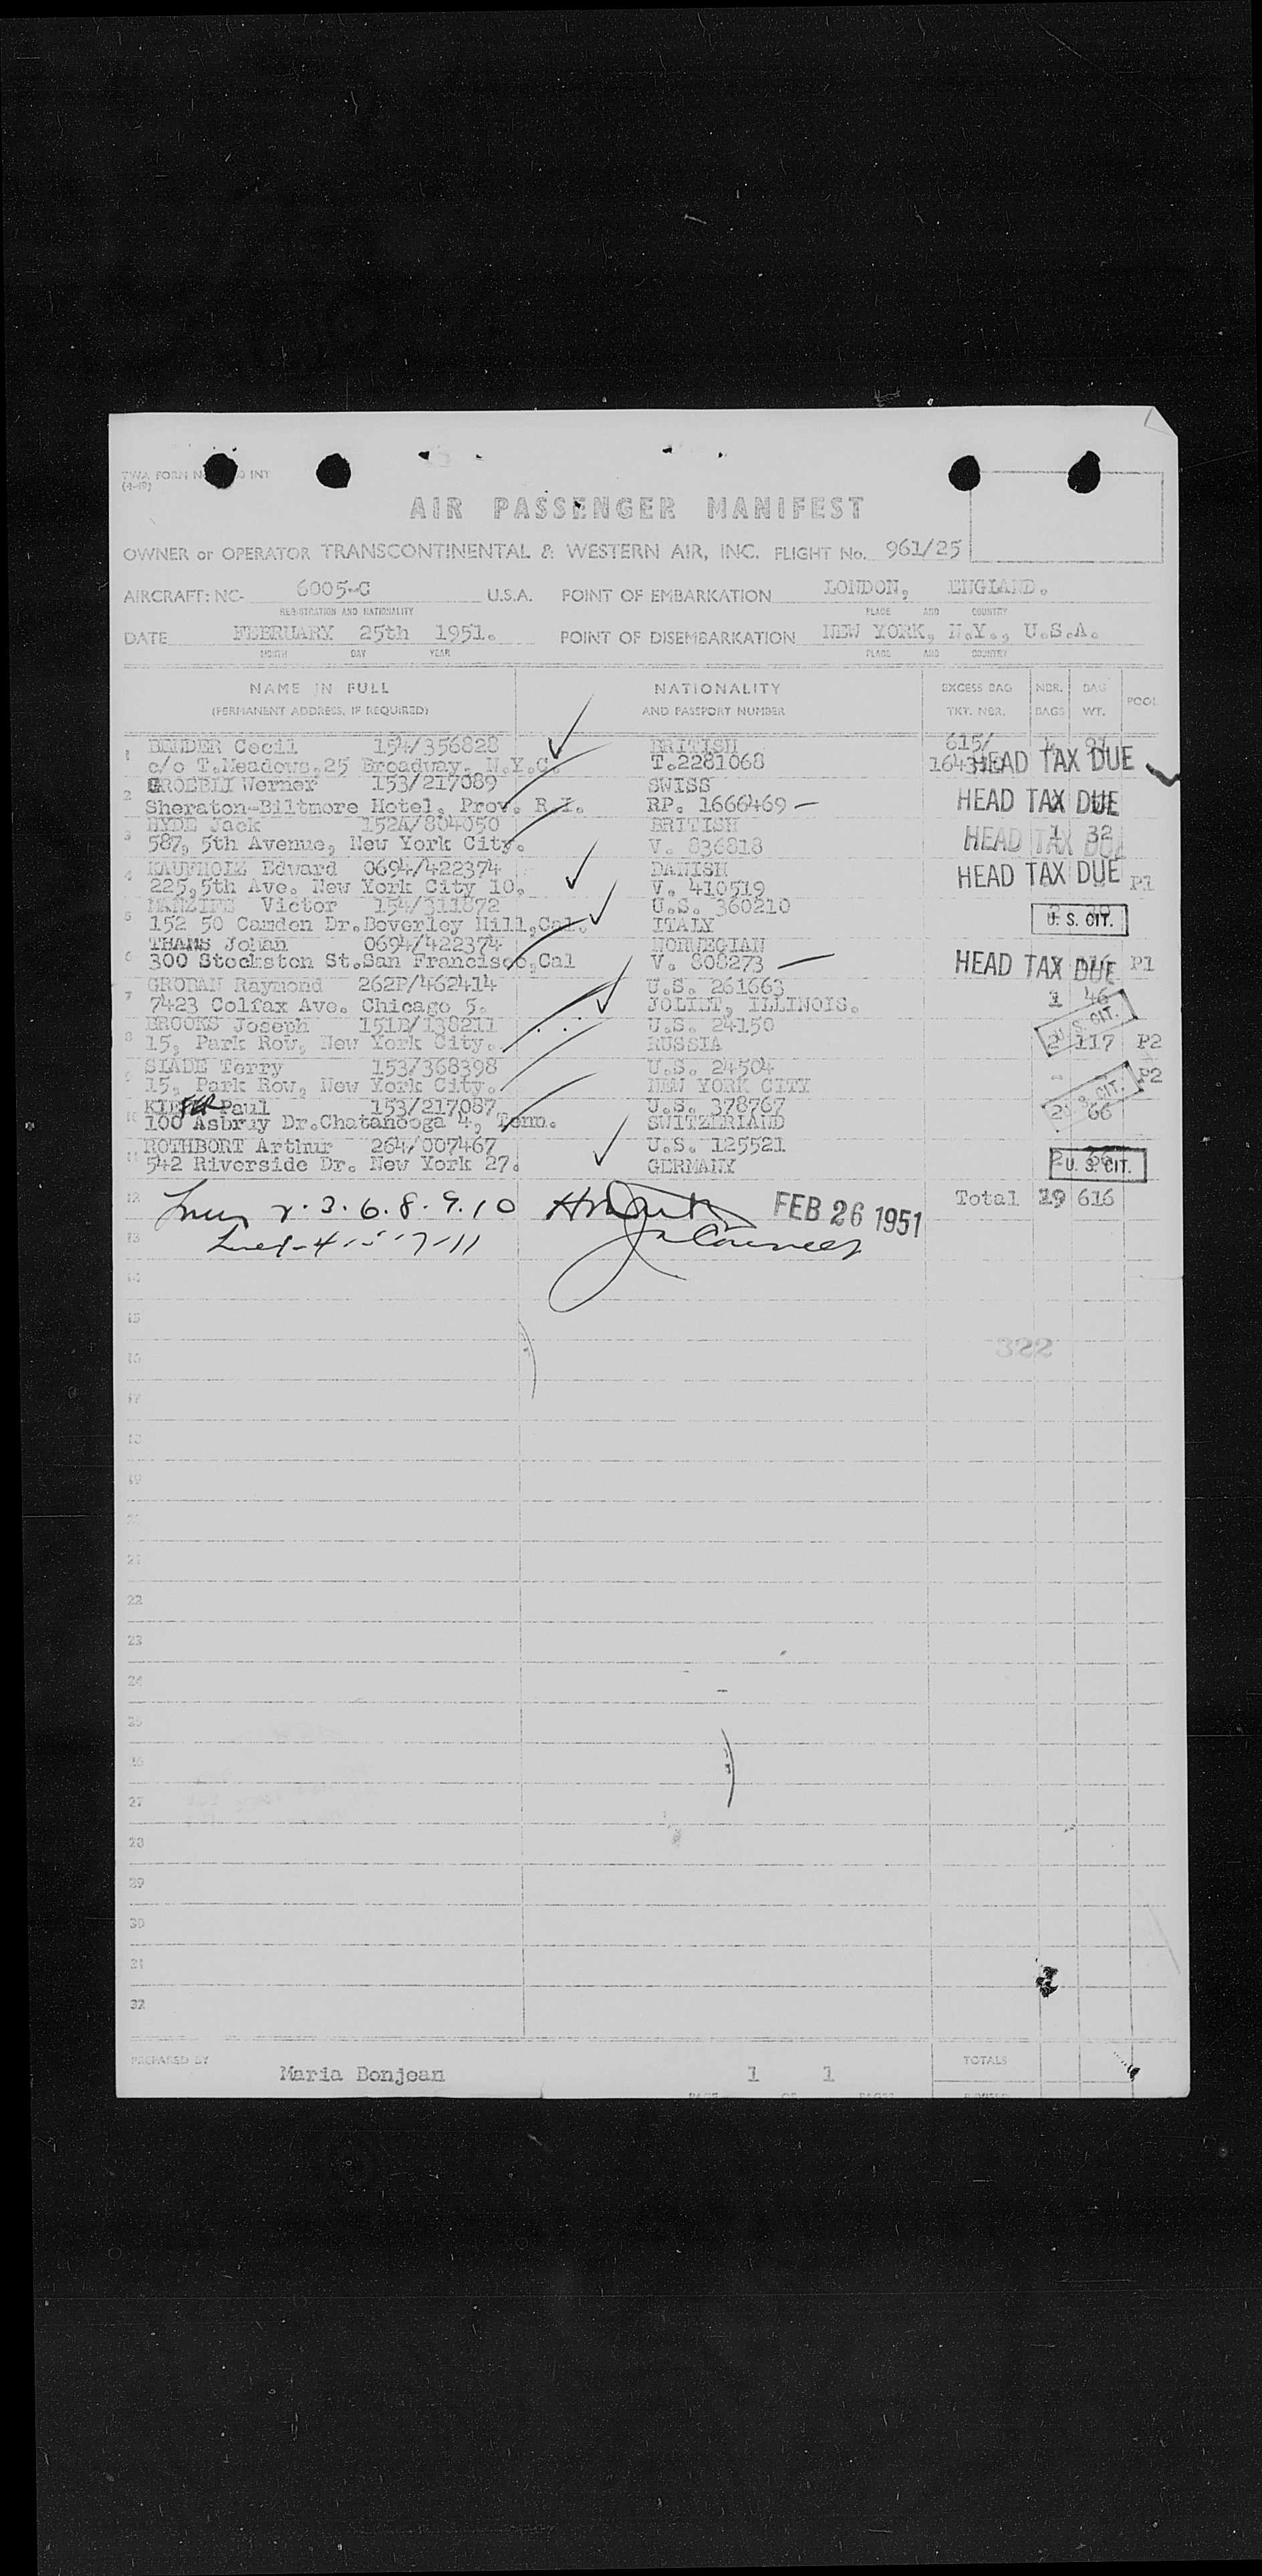 TWA FORM INT
(4-49)
AIR PASSENGER MANIFEST
OWNER or OPERATOR TRANSCONTINENTAL & WESTERN AIR, INC. FLIGHT No. 961/25
AIRCRAFT: NC- 6005-C U.S.A. POINT OF EMBARKATION LONDON, ENGLAND.
REGISTRATION AND NATIONALITY PLACE AND COUNTRY
DATE FEBRUARY 25th 1951. POINT OF DISEMBARKATION NEW YORK, N.Y., U.S.A.
MONTH DAY YEAR PLACE AND COUNTRY
NAME IN FULL NATIONALITY EXCESS BAG NBR. BAG POOL
(PERMANENT ADDRESS, IF REQUIRED) AND PASSPORT NUMBER TKT. NBR. BAGS WT.
1 BENDER Cecil 154/356828 BRITISH 615/
c/o T.Meadows,25 Broadway. N.Y.C. T.2281068 HEAD TAX DUE
2 Werner 153/217089 SWISS
Sheraton-Biltmore Hotel, Prov. R.I. RP. 1666469 HEAD TAX DUE
3 HYDE Jack 152A/804050 BRITISH 1 32
587, 5th Avenue, New York City. V. 836818 HEAD TAX DUE
4 KAUFHOLZ Edward 0694/422374 DANISH HEAD TAX DUE
225,5th Ave. New York City 10. V. 410519 P1
5 Victor 154/311872 U.S. 360210
152 50 Camden Dr.Beverley Hill,Cal. ITALY U. S. CIT.
6 THAMS Johan 0694/422374 NORWEGIAN
300 Stockston St.San Francisco,Cal V. 808273 HEAD TAX DUE P1
7 GROBAN Raymond 262P/462414 U.S. 261663
7423 Colfax Ave. Chicago 5. JOLIET, ILLINOIS. 1 46
8 BROOKS Joseph 151B/138211 U.S. 24150 U. S. CIT.
15, Park Row, New York City. RUSSIA 2 117 P2
9 SLADE Terry 153/368398 U.S. 24504
15, Park Row, New York City. NEW YORK CITY - P2
10 KIEFER Paul 153/217087 U.S. 378767 U. S. CIT.
100 Asbruy Dr.Chatanooga 4, Tenn. SWITZERLAND 2 66
11 ROTHBORT Arthur 264/007467 U.S. 125521
542 Riverside Dr. New York 27. GERMANY U. S. CIT.
12 Lines 2.3.6.8.9.10 FEB 26 1951 Total 19 616
13 Line 1-4-5-7-11
14
15
16 322
17
18
19
20
21
22
23
24
25
26
27
28
29
30
31
32
PREPARED BY Maria Bonjean 1 1 TOTALS
PAGE OF PAGES